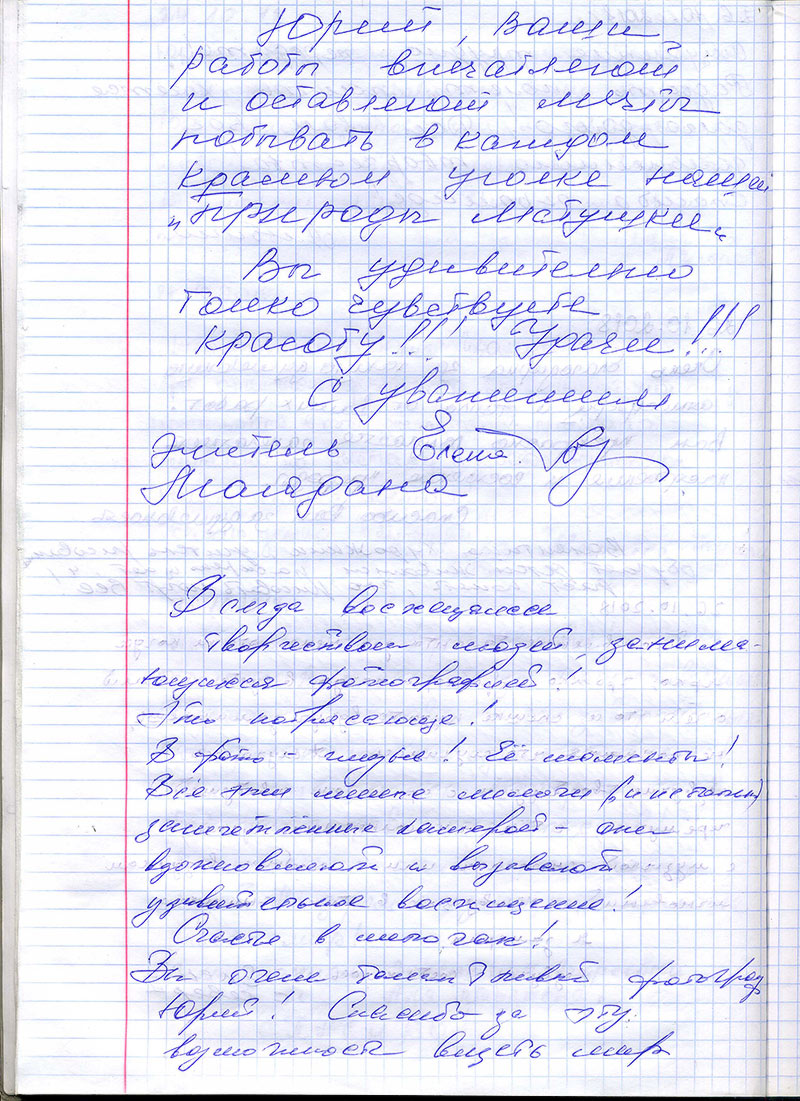 Юрий, Ваши
работы впечатляют
и оставляют мечты
побывать в каждом
красивом уголке нашей
„Природы Матушки“
Вы удивительно
тонко чувствуете
красоту!!! Удачи!!!
С уважением
житель Елена
Магадана
Всегда восхищалась
творчеством людей, занима-
ющихся фотографией!
Это потрясающе!
В фото – жизнь! Её моменты!
Все эти милые мелочи (и не только)
запечатлённые камерой – они
вдохновляют и вызывают
удивительное восхищение!
Счастье в мелочах!
Вы очень талантливый фотограф
Юрий! Спасибо за эту
возможность видеть мир